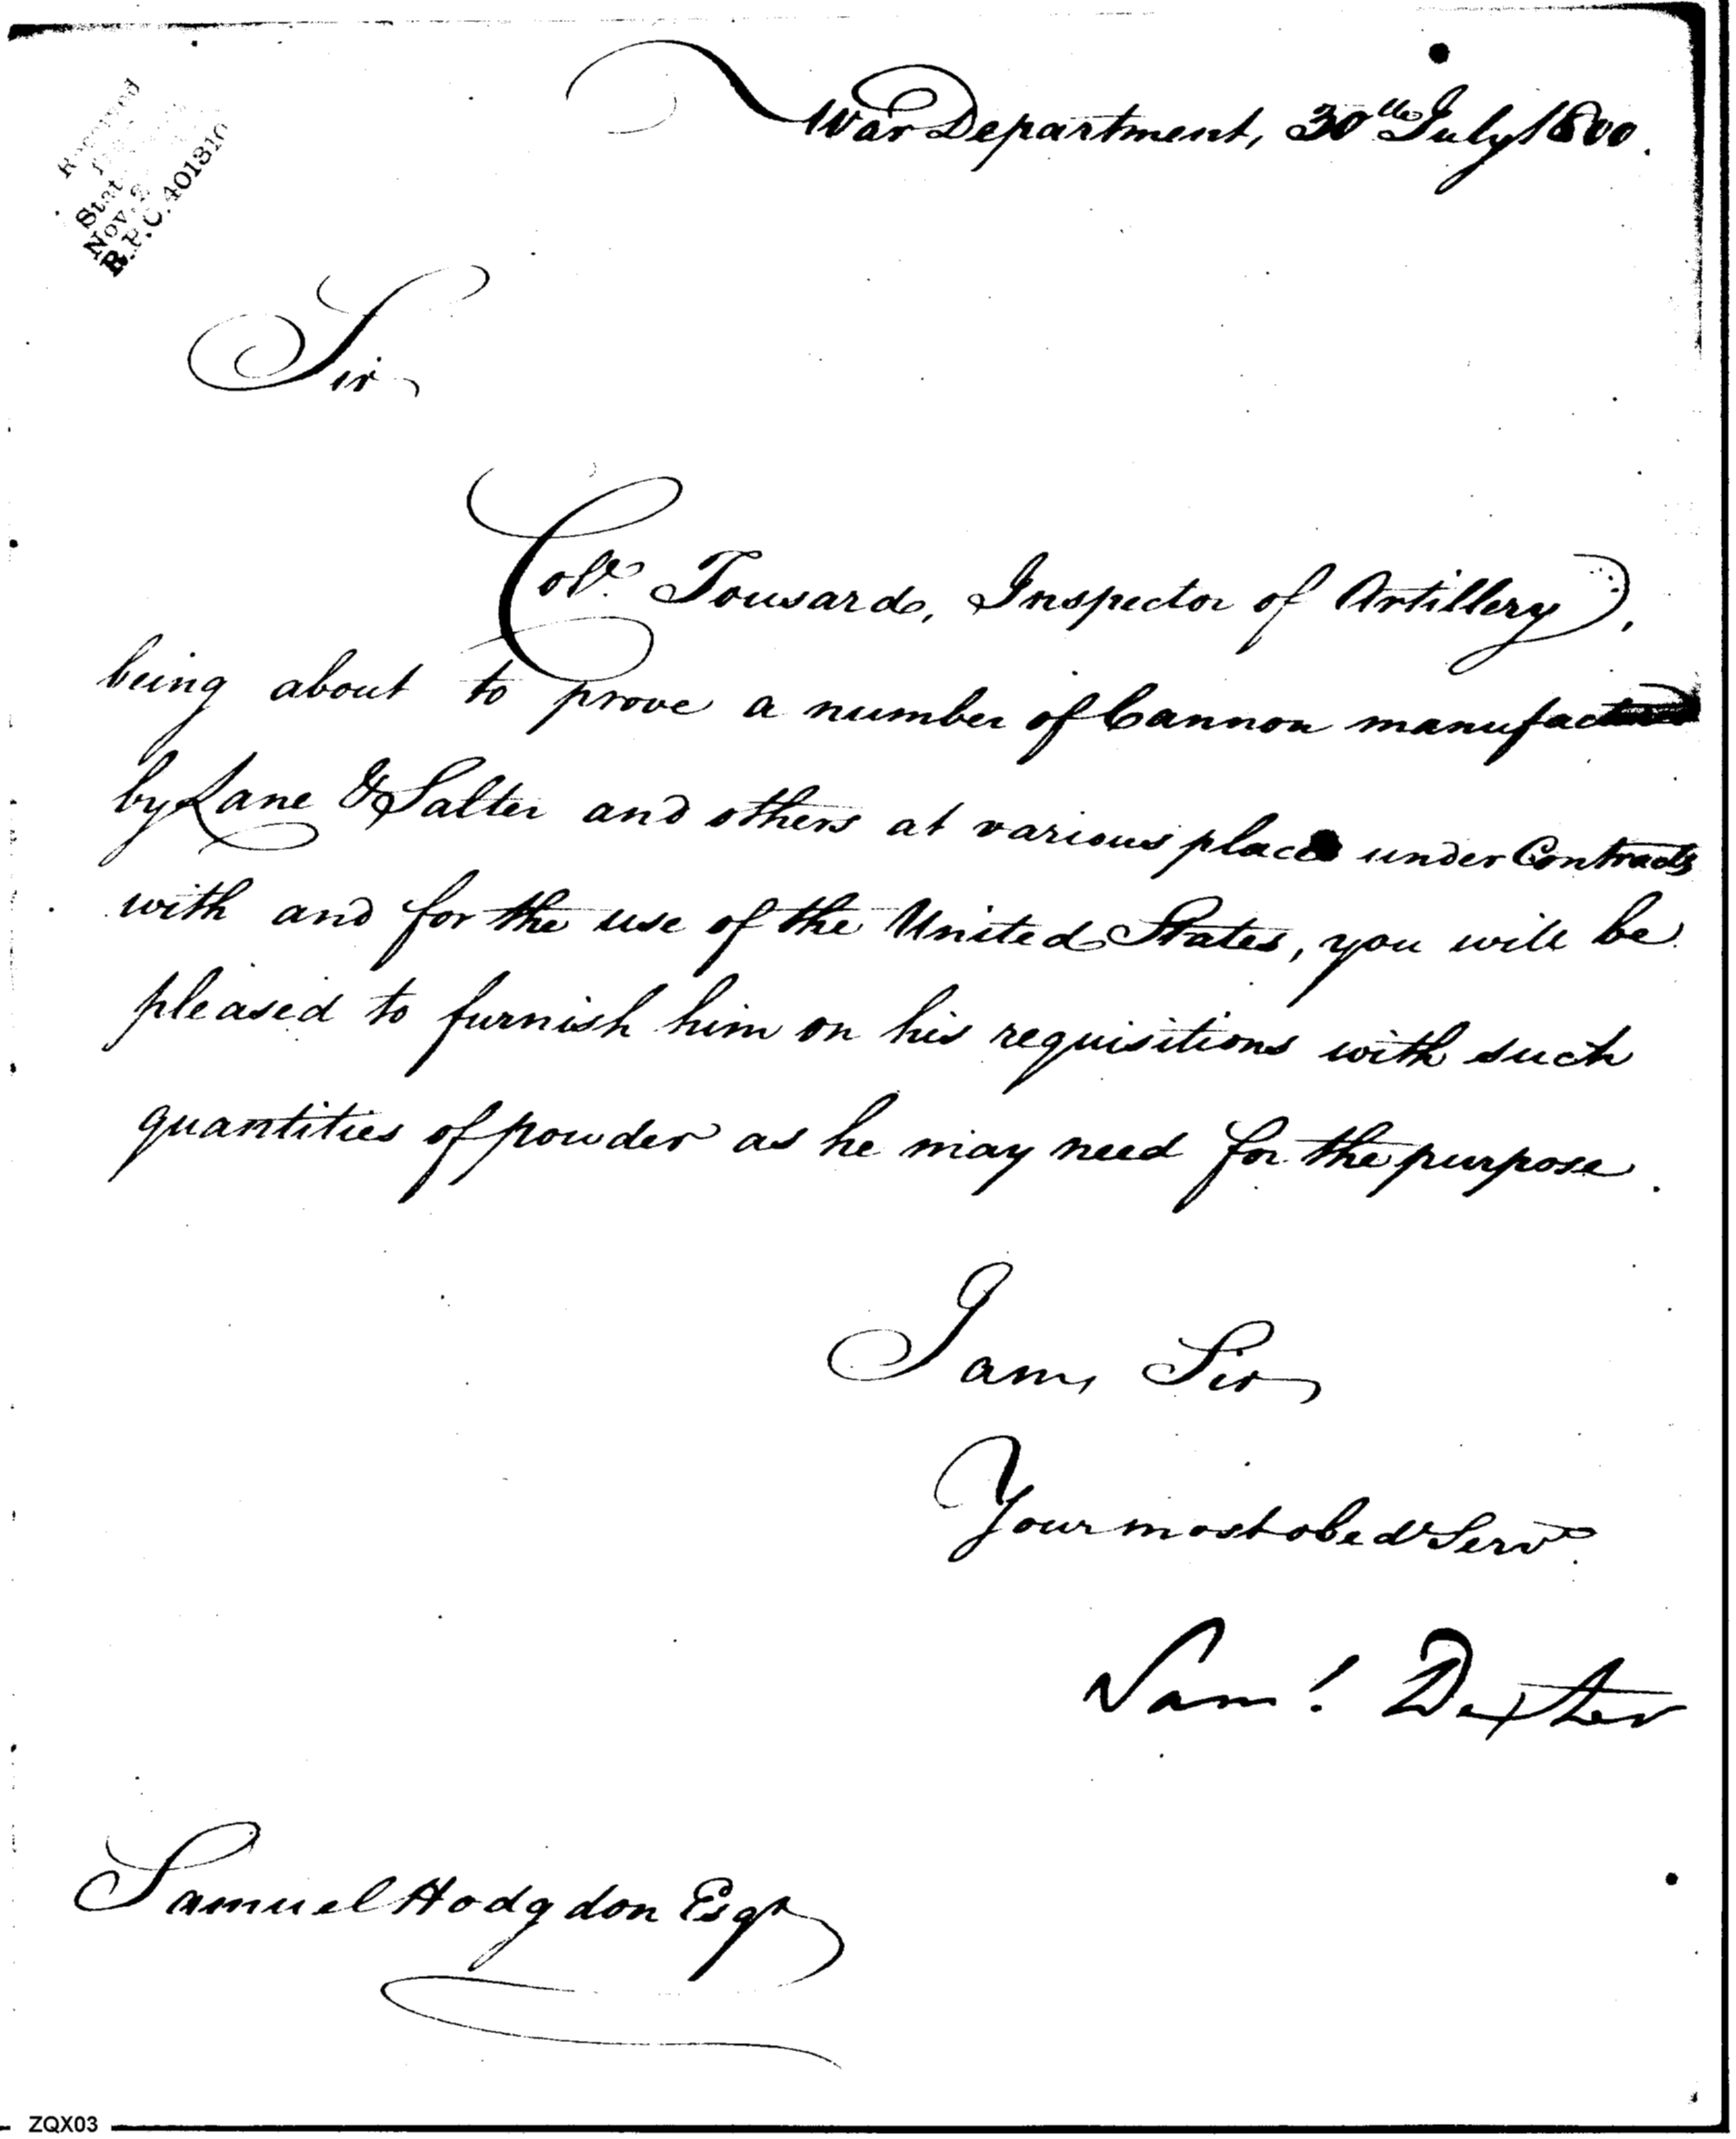 War Department, 30th July 1800.
Received
Stat
Nov. 2
R.P.C. 401310
Sir
Colo. Tousard, Inspector of Artillery,
being about to prove a number of Cannon manufactured
by Lane & Salter and others at various places under Contracts
with and for the use of the United States, you will be
pleased to furnish him on his requisitions with such
quantities of powder as he may need for the purpose.
I am, Sir
Your most obed Servt.
Saml. Dexter
Samuel Hodgdon Esqr
ZQX03